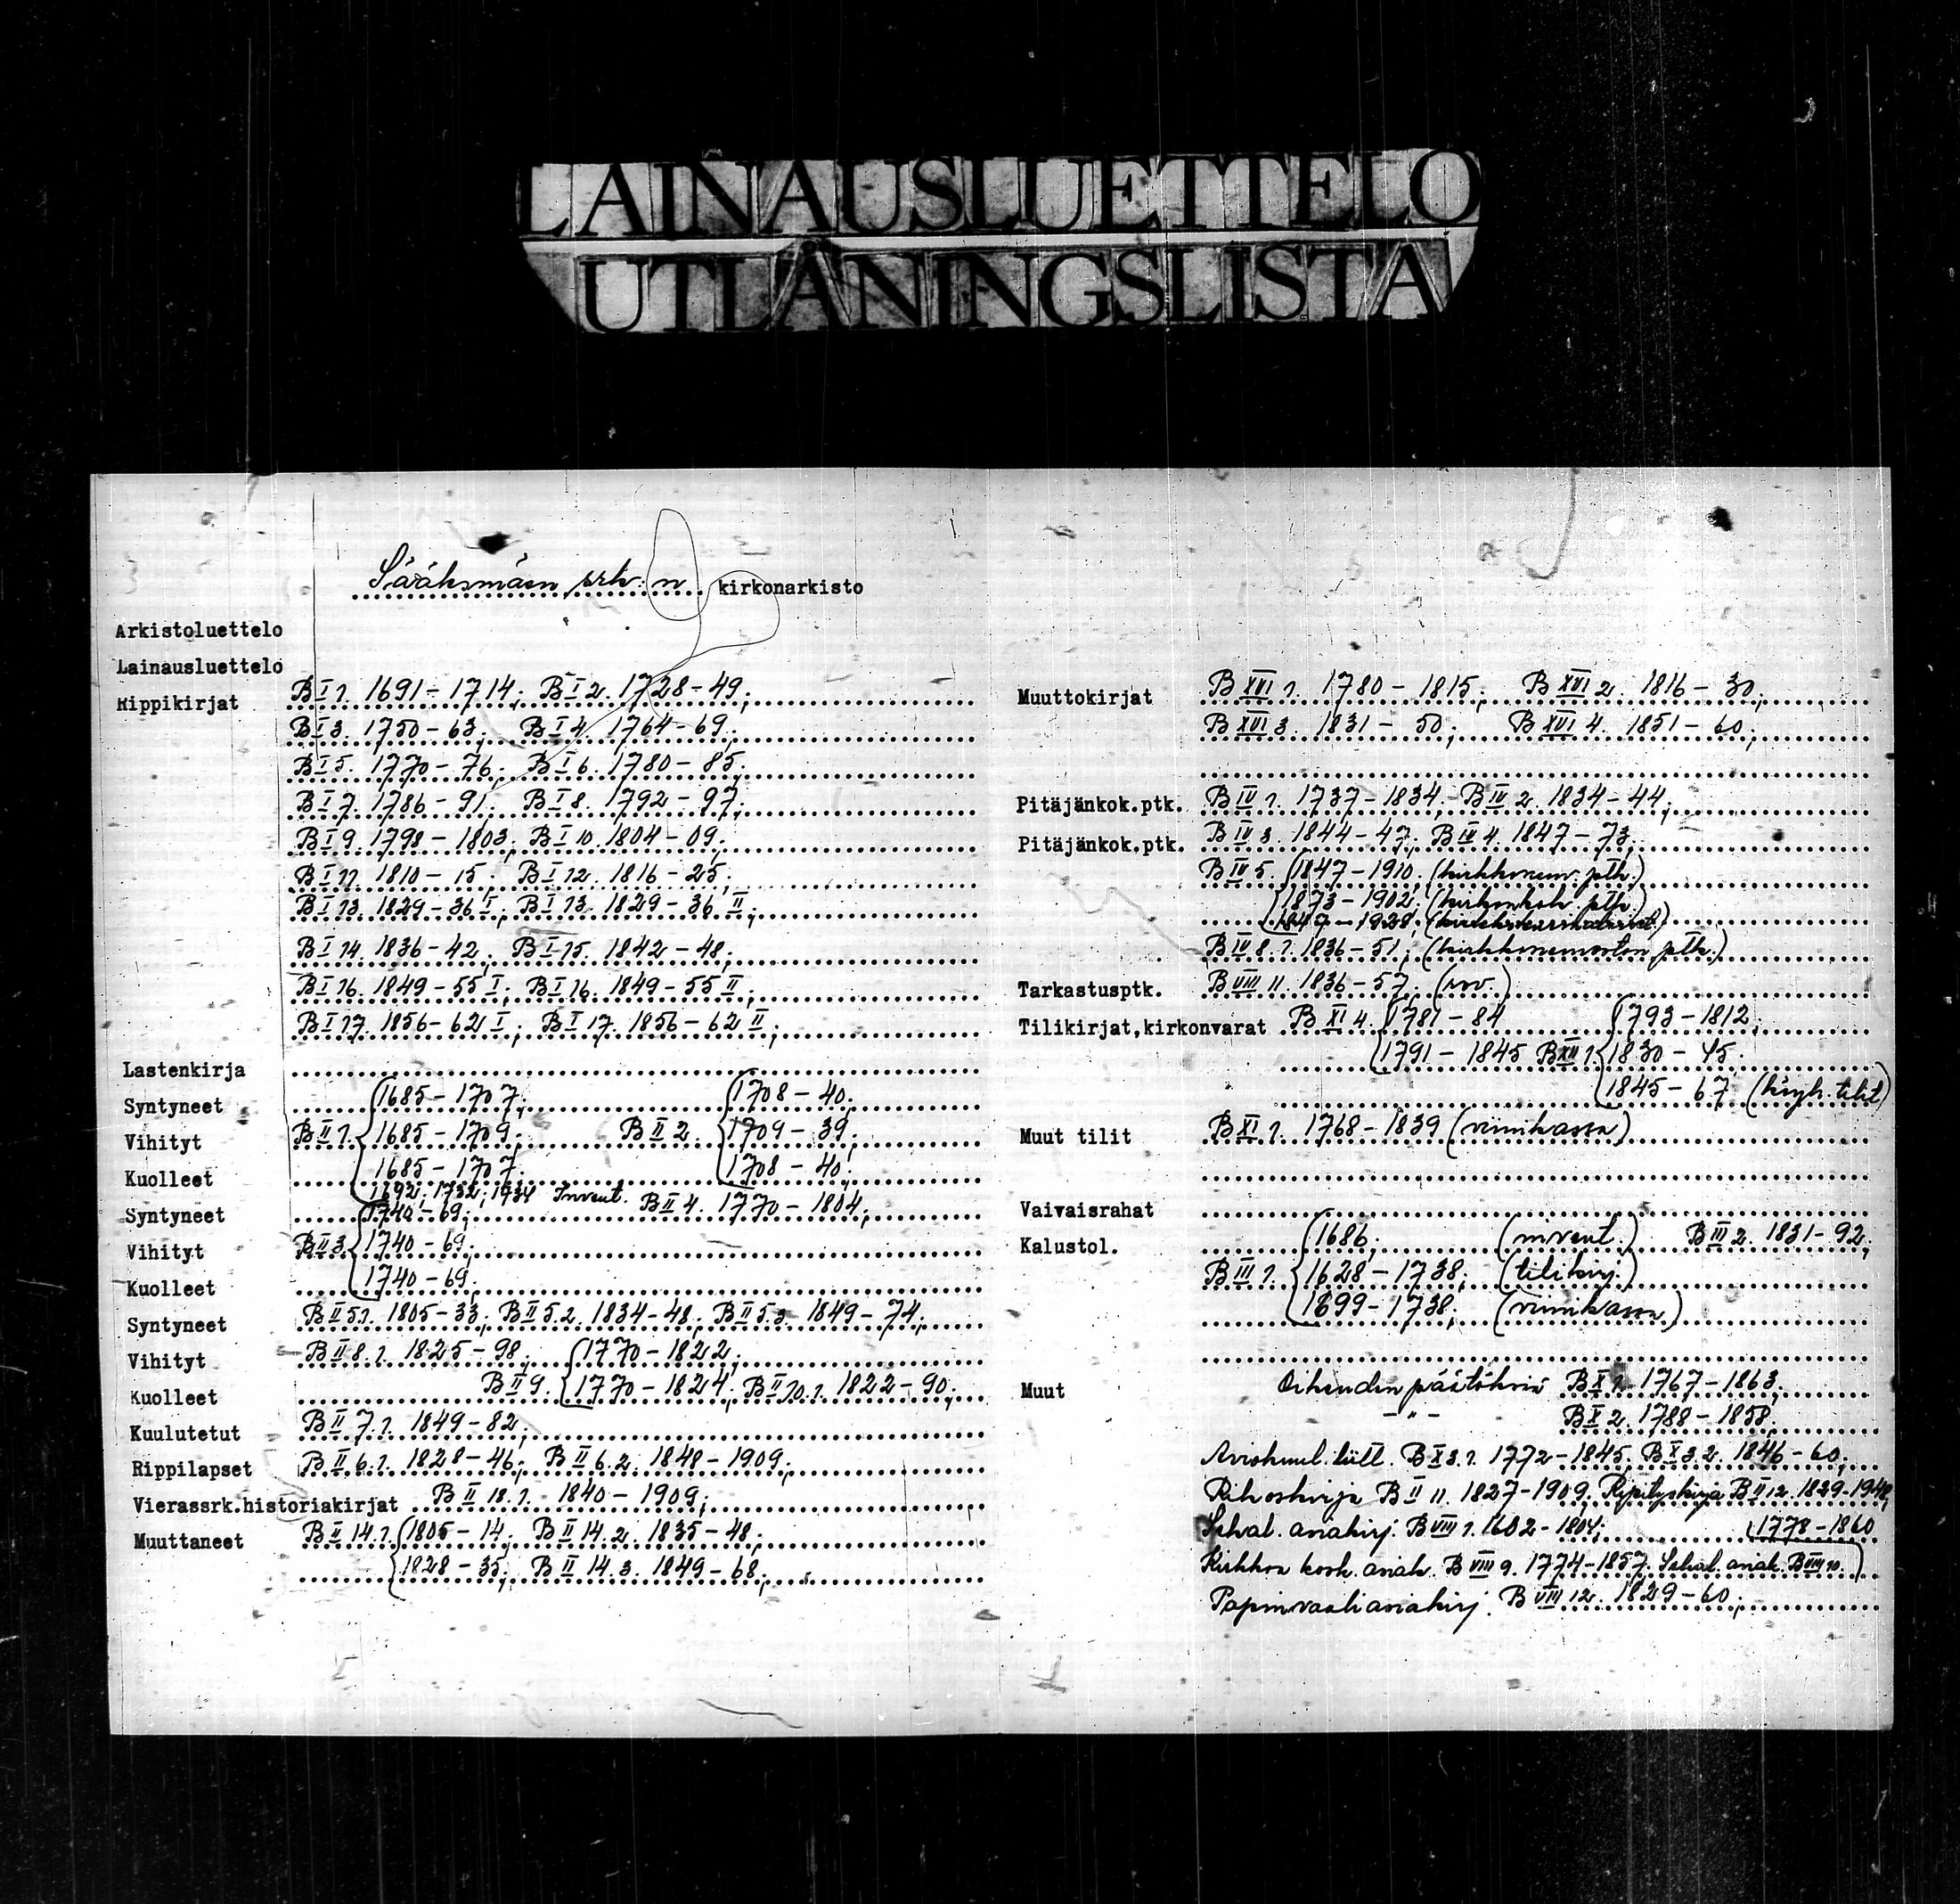 LAINAUSLUETTELO
UTLÅNINGSLISTA
Sääksmäen srk:n kirkonarkisto
Arkistoluettelo
Lainausluettelo
Rippikirjat B I 1. 1691-1714; B I 2. 1728-49;
B I 3. 1750-63; B I 4. 1764-69;
B I 5. 1770-76; B I 6. 1780-85;
B I 7. 1786-91; B I 8. 1792-97;
B I 9. 1798-1803; B I 10. 1804-09;
B I 11. 1810-15; B I 12. 1816-25;
B I 13. 1829-36 I; B I 13. 1829-36 II;
B I 14. 1836-42; B I 15. 1842-48;
B I 16. 1849-55 I; B I 16. 1849-55 II;
B I 17. 1856-62 I; B I 17. 1856-62 II;
Lastenkirja
Syntyneet 1685-1707; 1708-40;
Vihityt B II 1. 1685-1709; B II 2. 1709-39;
Kuolleet 1685-1707; 1708-40;
1692; 1732; 1934 Invent.
Syntyneet 1740-69; B II 4. 1770-1804;
Vihityt B II 3. 1740-69;
Kuolleet 1740-69;
Syntyneet B II 5.1. 1805-33; B II 5.2. 1834-48; B II 5.3. 1849-74;
Vihityt B II 8.1. 1825-98; 1770-1822;
Kuolleet B II 9. 1770-1824; B II 10.1. 1822-90;
Kuulutetut B II 7.1. 1849-82;
Rippilapset B II 6.1. 1828-46; B II 6.2. 1848-1909;
Vierassrk.historiakirjat B II 18.1. 1840-1909;
Muuttaneet B II 14.1. 1805-14; B II 14.2. 1835-48;
1828-35; B II 14.3. 1849-68;
Muuttokirjat B XVI 1. 1780-1815; B XVI 2. 1816-30;
B XVI 3. 1831-50; B XVI 4. 1851-60;
Pitäjänkok.ptk. B IV 1. 1737-1834; B IV 2. 1834-44;
Pitäjänkok.ptk. B IV 3. 1844-47; B IV 4. 1847-73;
B IV 5. 1847-1910; (kirkkoneuv. ptk.)
1873-1902; (kirkonkok. ptk.)
1847-1928;
B IV 8.1. 1836-51; (kirkkoneuvoston ptk.)
Tarkastusptk. B VIII 11. 1836-57; (rov.)
Tilikirjat,kirkonvarat B XI 4. 1781-84 1793-1812;
1791-1845 B XII 1. 1830-45.
1845-67 (köyh. tilit)
Muut tilit B XI 1. 1768-1839 (viinikassa)
Vaivaisrahat
Kalustol. 1686; (invent.) B III 2. 1831-92;
B III 1. 1628-1738; (tilikirj.)
1699-1738; (viinikassa)
Muut Oikeuden päätöksiä B X 1. 1767-1863;
-"- B X 2. 1788-1858;
Aviokuul. B X 3.1. 1772-1845; B X 3.2. 1846-60;
Rikoskirja B II 11. 1827-1909; Ripityskirja B II 12. 1829-1948;
Sekal. asiakirj. B VIII 1. 1602-1804; (1778-1860
Kirkkoa kosk. asiak. B VIII 9. 1774-1857; Sekal. asiak. B VIII 10.)
Papinvaaliasiakirj. B VIII 12. 1829-60;